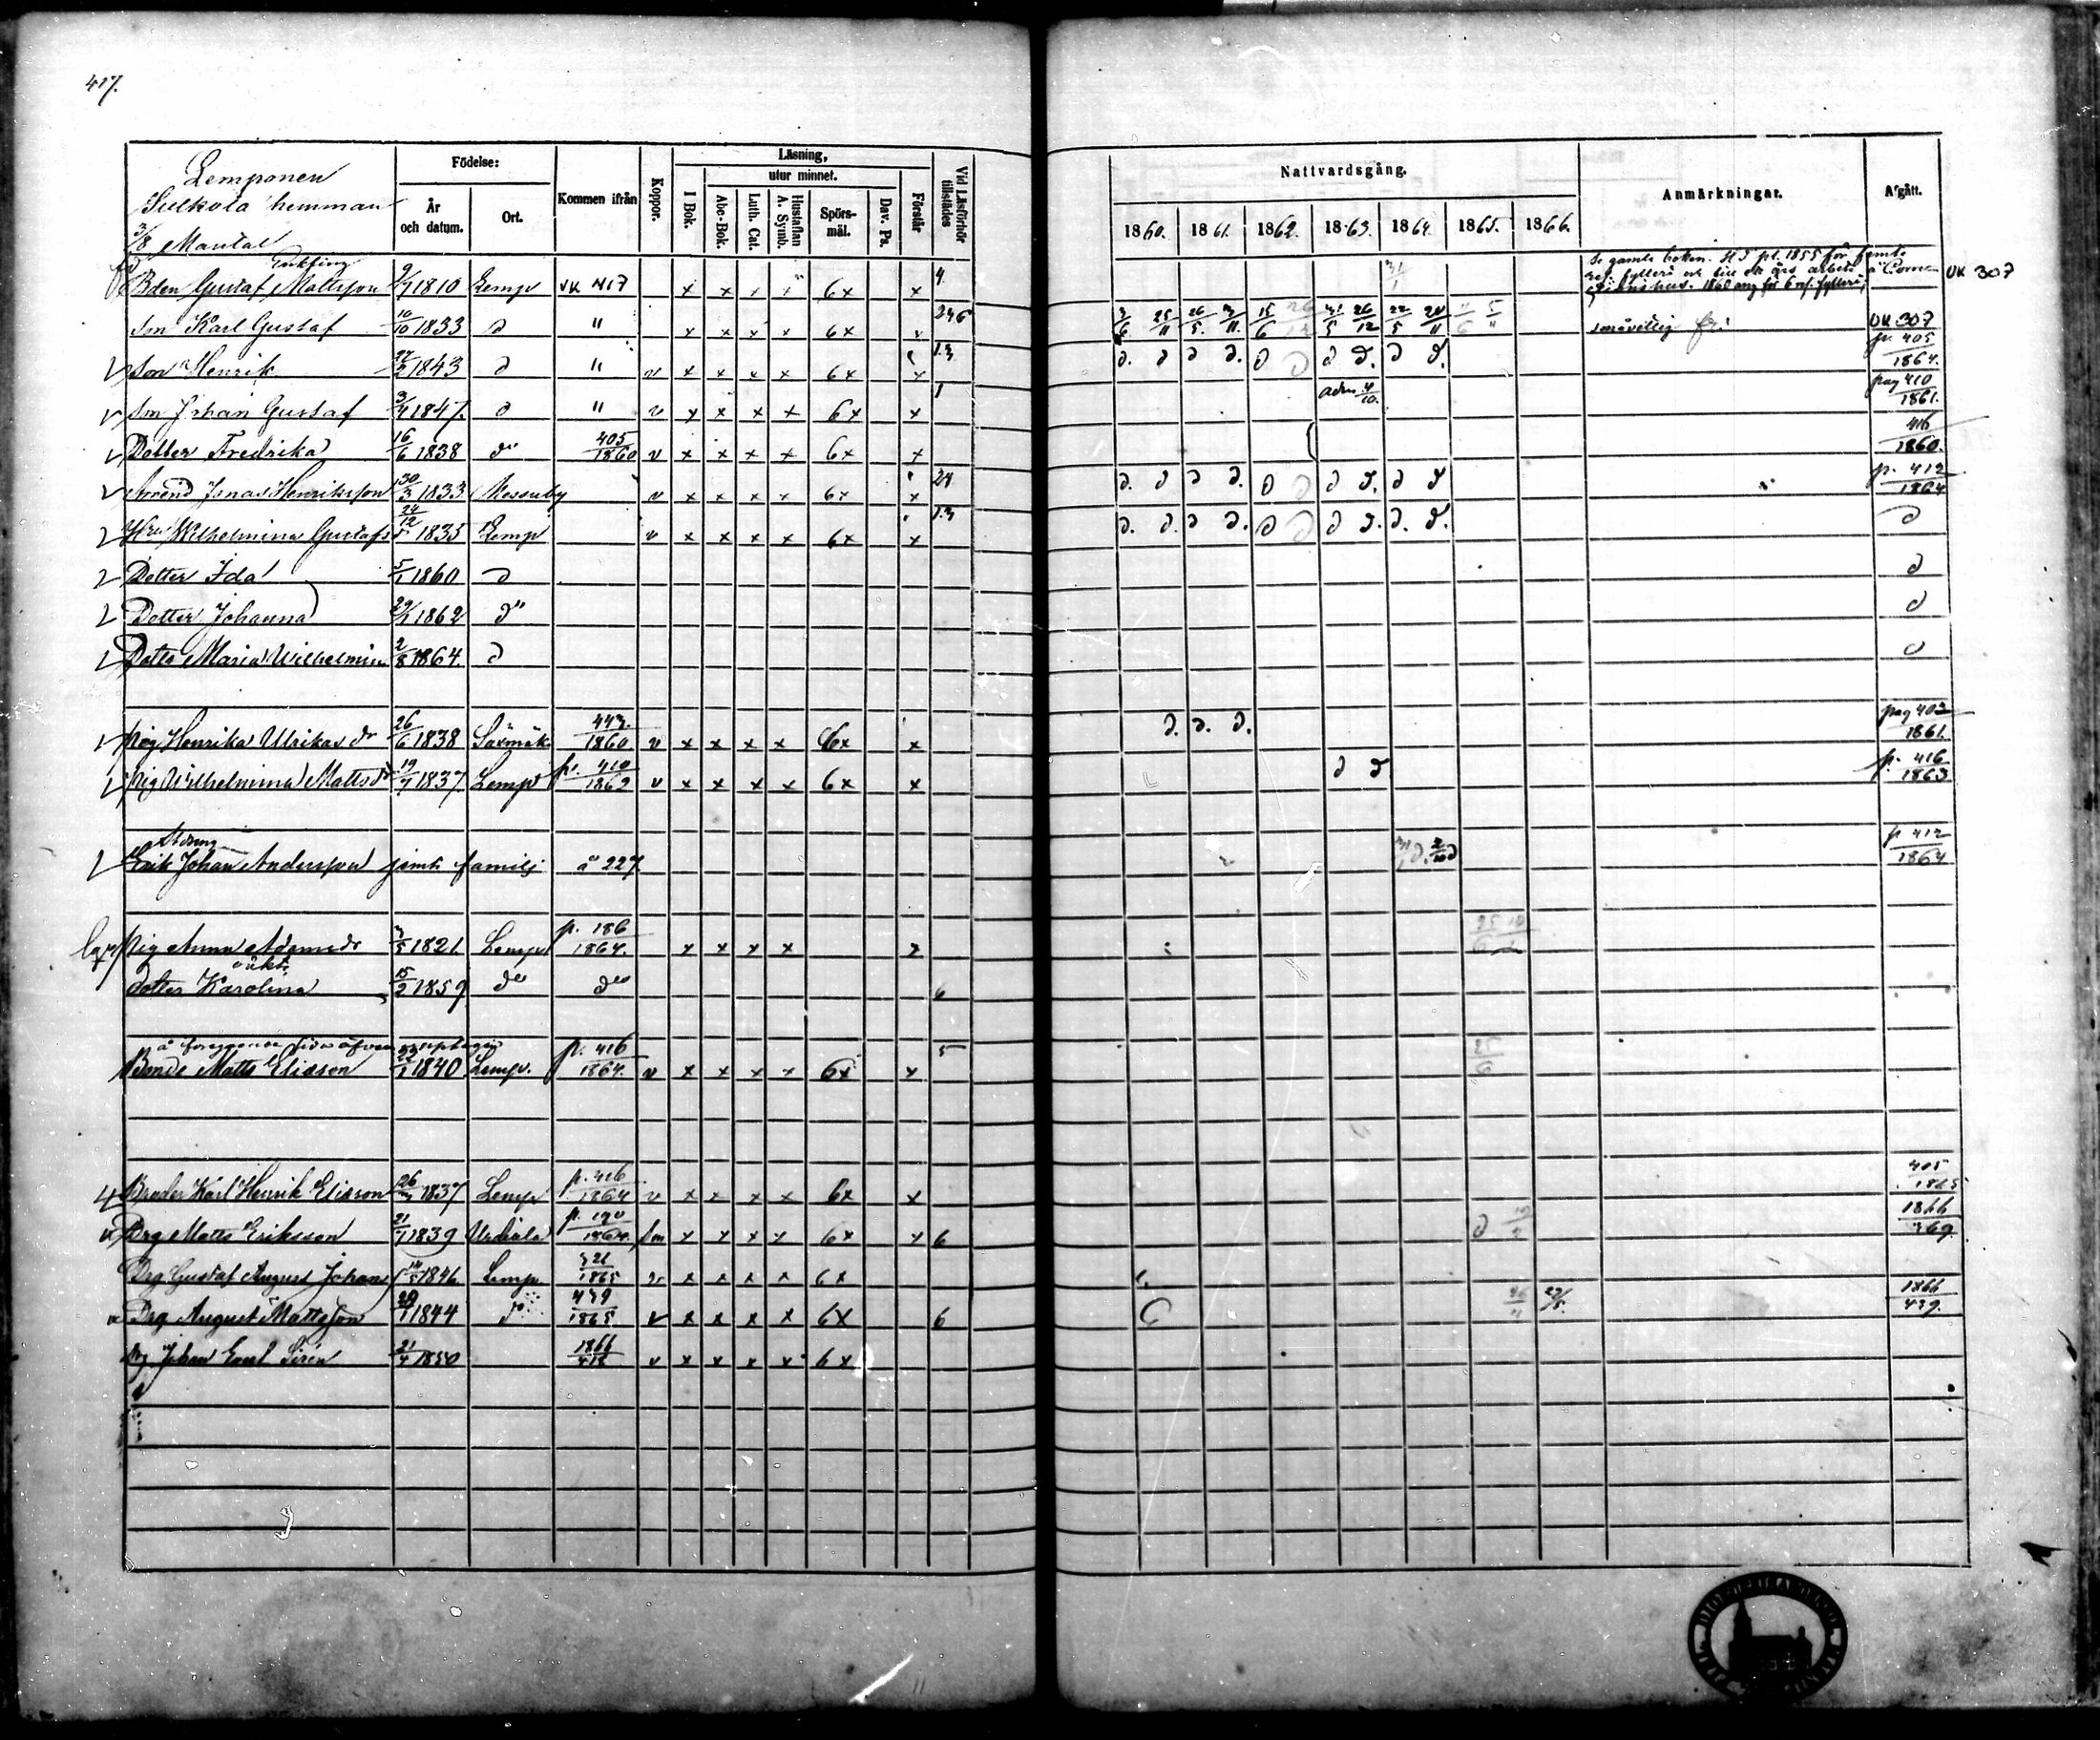 417.
Lemponen
Suckola hemman
3/8 Mantal
Födelse:
År och datum.
Ort.
Kommen ifrån
Koppor.
Läsning,
I Bok.
utur minnet.
Abc-Bok.
Luth. Cat.
Hustaflan A. Symb.
Spörsmål.
Dav. Ps.
Förstår
Vid Läsförhör tillstädes
Nattvardsgång.
1860. 1861. 1862. 1863. 1864. 1865. 1866.
Anmärkningar.
Afgått.
Enkling
Bden Gustaf Mattsson 9/7 1810 Lemp VK 417 x x x x 6x x 4 31/1 UK 307
Se gamla boken.
Son Karl Gustaf 10/10 1833 d " x x x x 6x x 246 UK 307
v Son Henrik 1843 d " v x x x x 6x x 1.3 d. d d d. d d d d. d d. p. 405 1864.
v Son Johan Gustaf 3/4 1847. d " v x x x x 6x x 1 adm 4/10. pag 410 1861.
v Dotter Fredrika 16/6 1838 do 405 1860 v x x x x 6x x 416 1860.
v Arrend Jonas Henriksson 30/3 1833 Messuby v x x x x 6x x 24 d. d d d. d d d d. d d p. 412 1864
v Hru Wilhelmina Gustafsdr 24/12 1835 Lemp v x x x x 6x x 1.3 d. d. d d. d d d d. d. d. d
v Dotter Ida 5/1 1860 d d
v Dotter Johanna 1862 do d
v Dotter Maria Wilhelmina 2/8 1864. d d
v Pig Henrika Ulrikasdr 26/6 1838 Säxmäk 443. 1860 v x x x x 6x x d. d. d. pag 403 1861.
v Pig Wilhelmina Mattsdr 19/7 1837 Lemp p. 410 1862 v x x x x 6x x d d p. 416 1863
v Erik Johan Andersson jemte familj å 227. p 412 1864
Pig Anna Adamsdr 3/5 1821. Lemp p. 186 1864. x x x x x
oäkt.
dotter Karolina 15/2 1859 do do 6
å föregående sida äfven upptagen
Bonde Matts Eliasson 1840 Lemp. p. 416 1864. v x x x x 6x x 5 25/6
Broder Karl Henrik Eliasson 1837 Lemp p. 416 1864 v x x x x 6x x 405 1865
v Drg Matts Eriksson 21/1 1839 Urdiala p. 190 1864. x x x x 6x x 6 d 1866 369
Drg Gustaf August Johans 1846 Lemp 1865 v x x x x 6x
Drg August Mattsson 1844 do 439 1865. v x x x x 6x 6 1866 439.
Drg Johan Emil Sirén 21/4 1850 1866 412 v x x x x 6x